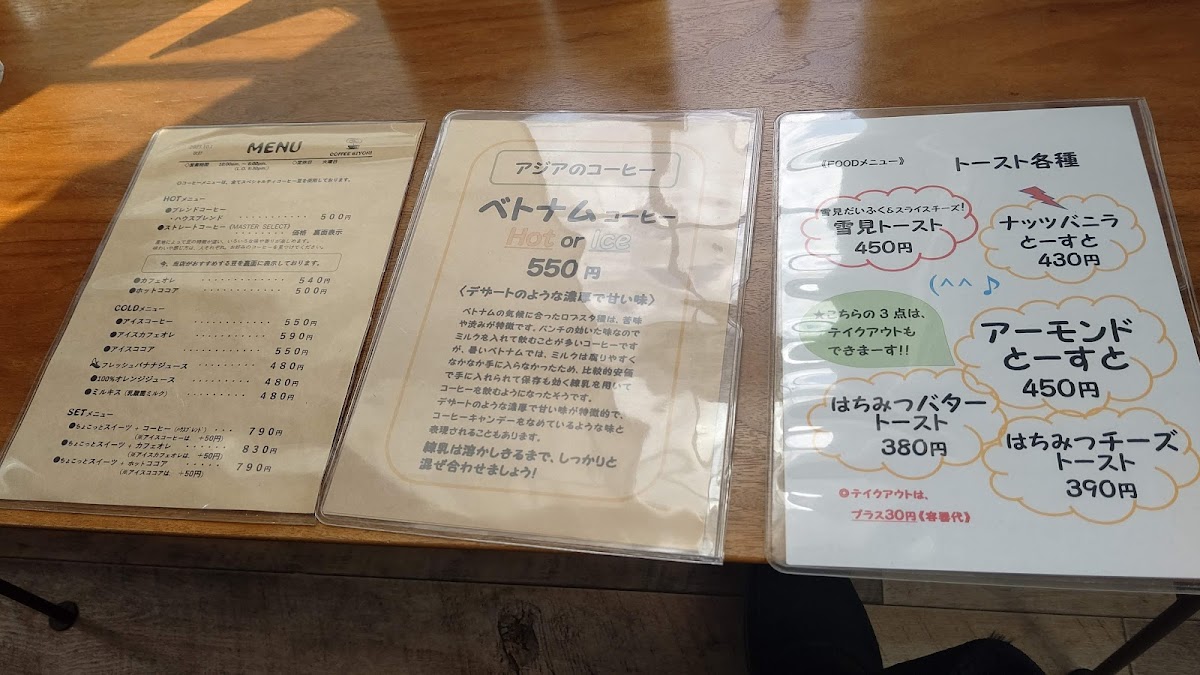 MENU
COFFEE BIYORI
◇営業時間 10:00am. ～ 6:00pm. ◇定休日 火曜日
(L.O. 5:30pm.)
◎コーヒーメニューは、全てスペシャルティコーヒー豆を使用しております。
HOTメニュー
●ブレンドコーヒー
・ハウスブレンド ············ 500円
●ストレートコーヒー《MASTER SELECT》
·········· 価格 裏面表示
産地によって豆の特徴が違い、いろいろな味や香りが楽しめます。
味わいや香りは、人それぞれ。お好みのコーヒーを見つけてください。
今、当店がおすすめする豆を裏面に表示しております。
●カフェオレ ·············· 540円
●ホットココア ············· 500円
COLDメニュー
●アイスコーヒー ············ 550円
●アイスカフェオレ ··········· 590円
●アイスココア ············ 550円
フレッシュバナナジュース ······· 480円
●100%オレンジジュース ······· 480円
●ミルキス(乳酸菌ミルク) ······· 480円
SETメニュー
●ちょこっとスイーツ + コーヒー(ハウスブレンド) ··· 790円
(※アイスコーヒーは +50円)
●ちょこっとスイーツ + カフェオレ ···· 830円
(※アイスカフェオレは +50円)
●ちょこっとスイーツ + ホットココア ··· 790円
(※アイスココアは +50円)
アジアのコーヒー
ベトナムコーヒー
Hot or Ice
550円
〈デザートのような濃厚で甘い味〉
ベトナムの気候に合ったロブスタ種は、苦味
や渋みが特徴です。パンチの効いた味なので
ミルクを入れて飲むことが多いコーヒーです
が、暑いベトナムでは、ミルクは腐りやすく
なかなか手に入らなかったため、比較的安価
で手に入れられて保存も効く練乳を用いて
コーヒーを飲むようになったそうです。
デザートのような濃厚で甘い味が特徴的で、
コーヒーキャンデーをなめているような味と
表現されることもあります。
練乳は溶かしきるまで、しっかりと
混ぜ合わせましょう!
《FOODメニュー》
トースト各種
雪見だいふく&スライスチーズ!
雪見トースト
450円
ナッツバニラ
とーすと
430円
(^^♪
★こちらの3点は、
テイクアウトも
できまーす!!
アーモンド
とーすと
450円
はちみつバター
トースト
380円
はちみつチーズ
トースト
390円
◎テイクアウトは、
プラス30円《容器代》